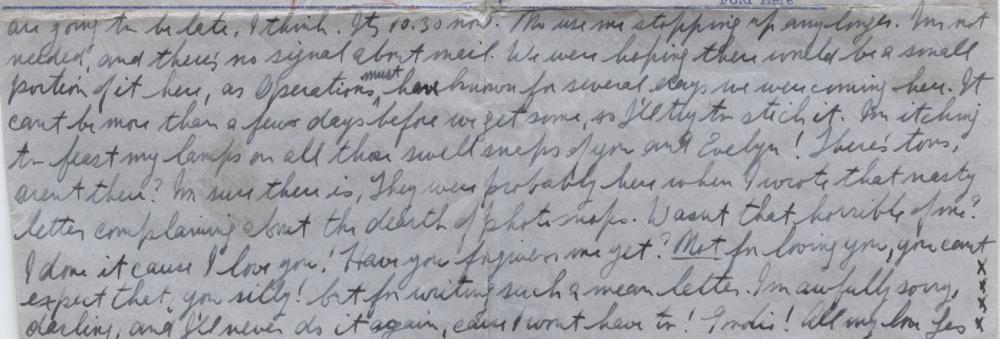 Fold Here
are going to be late, I think. It's 10.30 now. No use me stopping up any longer. I'm not
needed, and there's no signal about mail. We were hoping there would be a small
portion of it here, as Operations must have known for several days we were coming here. It
can't be more than a few days before we get some, so I'll try to stick it. I'm itching
to feast my lamps on all those swell snaps of you and Evelyn! There's tons,
aren't there? I'm sure there is, They were probably here when I wrote that nasty
letter complaining about the dearth of photo snaps. Wasn't that horrible of me?
I done it cause I love you! Have you forgiven me yet? Not for loving you, you can't
expect that, you silly! but for writing such a mean letter. I'm awfully sorry,
darling, and I'll never do it again, cause I won't have to! Goodis! All my love Les
x
x
x
x
x